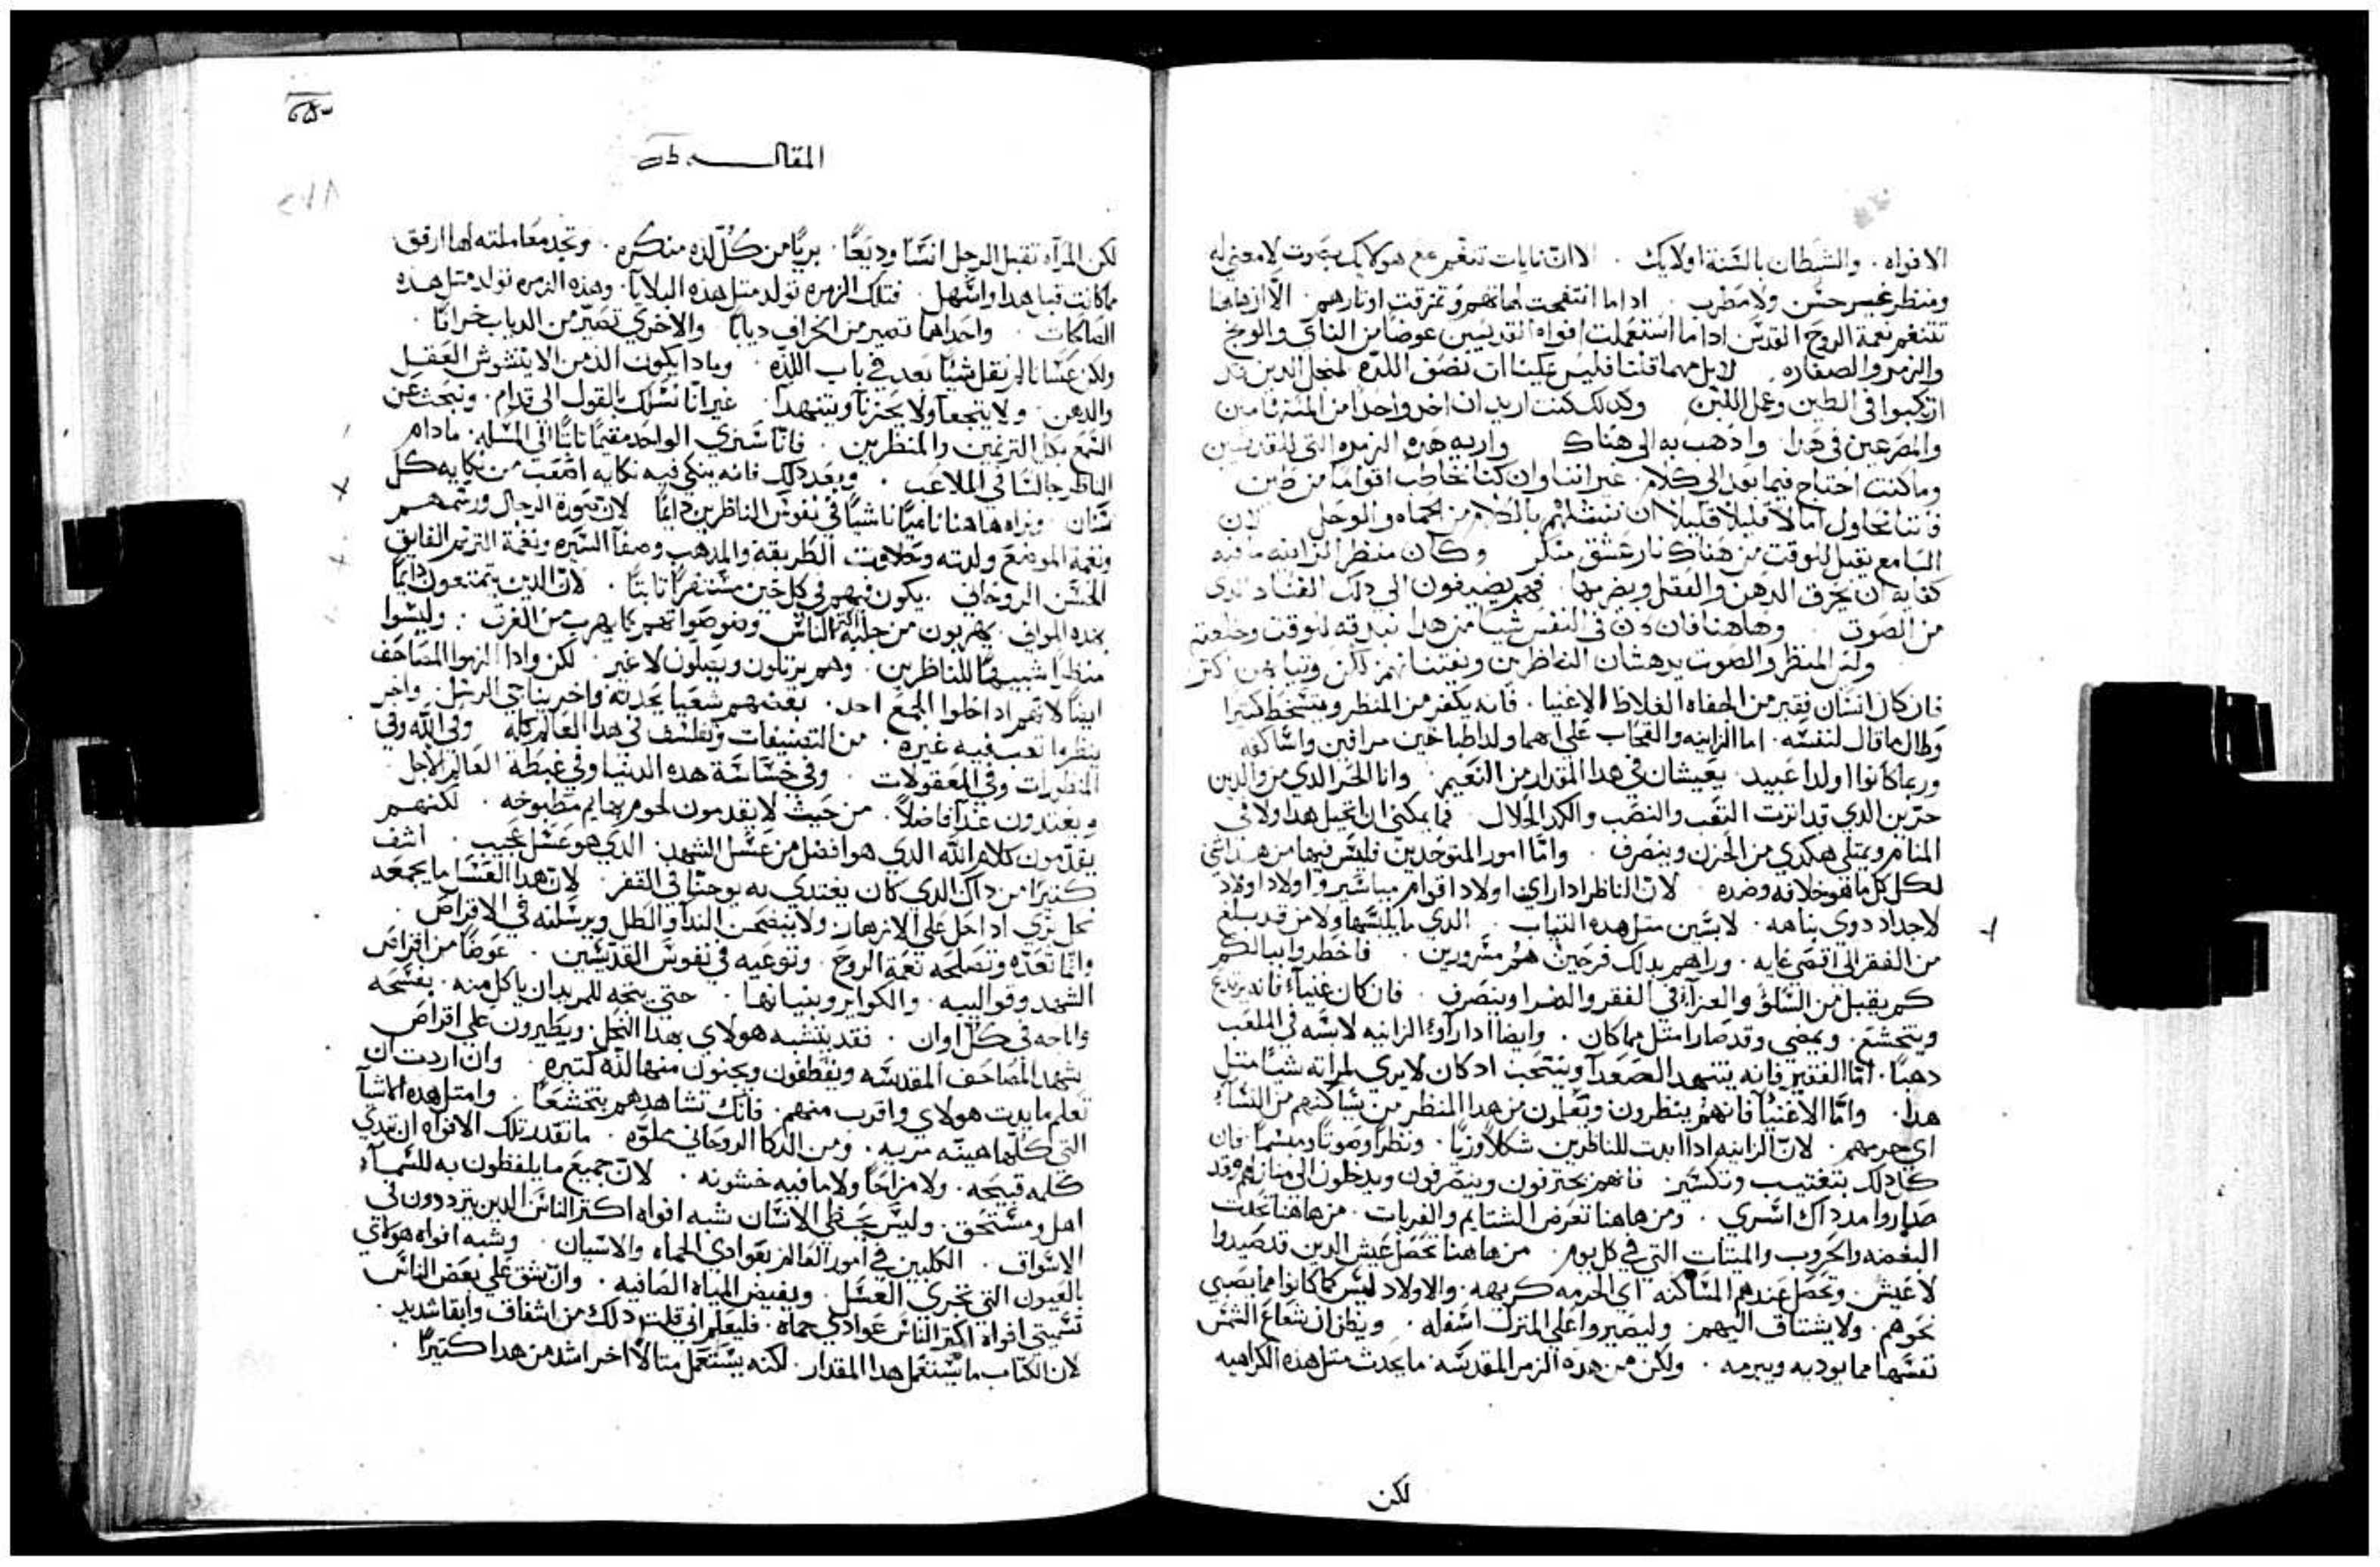 الافواه. والشيطان بالسنة اولايك. الا ان نايات تتنغم مع هولايك بصوت لا معني له
ومنظر غير حسن ولا مطرب. اداما انتفخت لهاتهم وتمزقت اوتارهم. الا ان هاهنا
تتنغم نعمة الروح القدس اداما استعملت افواه القديسين عوضا من الناي والونج
والزمر والصفاره. لا بل مهما قلنا فليس يمكننا ان نصف اللده لمحل الدين قد
ارتكبوا في الطين وعمل اللبن وكدلك كنت اريد ان اخد واحدا من
والمصرعين في هدا. وادهب به الي هناك واريه هده الزمره التي للقديسين
وما كنت احتاج فيما بعد الي كلام. غير اننا وان كنا نخاطب اقواما من طين
فاننا نحاول اما لا قليلا قليلا ان ننتشلهم بالكلام من الحماه والوحل لان
السامع يقبل للوقت من هناك نار عشق منكر وكان منظر الزانيه ما فيه
كفايه ان يحرق الدهن والعقل ويضرمها. فهم يضيفون الي دلك الفساد الدي
من الصوت. وهاهنا فان كان في النفس شيا من هدا نبدته للوقت وخلعته
ولم المنظر والصوت يدهشان الناظرين ويفتنانهم لكن وثيابهن اكتر
فان كان انسان فقير من الحفاه الغلاظ الاغنيا. فانه يكفر من المنظر ويتسخط كتيرا
وطال ما قال لنفسه. اما الزانيه والقحاب علي اهما ولد اطباخين مرافين واساكفه
وربما كانوا اولدا عبيد. يعيشان في هدا المقدار من النعيم. وانا الحر الدي من والدين
حرين الدي قد اترت التعب والنصب والكد الحلال. فما يمكنني ان اتخيل هدا ولا في
المنام ويمتلي هكدي من الحزن وينصرف. واما امور المتوحدين فليس فيها من هدا شي
لكل كل ما هو خلافه وضده لان الناظر ادا راي اولاد اقوام مياسير واولاد اولاد
لاجداد دوي نباهه. لابسين متل هده التياب. الدي ما يلبسها ولا من قد بلغ
من الفقر الي اقصي غايه. وراهم بدلك فرحين هم مسرورين. فاخطروا ببالكم
كم يقبل من السلو والعزاء في الفقر والضرا وينصرف. فان كان غنياء فانه يرتدع
ويتخشع. ويمضي وقد صار امتل مما كان. وايضا ادا راو الزانيه لابسه في الملعب
دهبا. اما الفقير فانه يتنهد الصعدا وينتحب اد كان لا يري لمراته شيا متل
هدا. واما الاغنيا فانهم ينظرون ويعملون من هدا المنظر من يساكنهم من النساء
اي حرمهم. لان الزانيه ادا ابدت للناظرين شكلا وزيا. ونظرا وصوتا ومشيا. فان
كل دلك بتفتيت وتكسير. فانهم يحترقون وينصرفون ويدخلون الي منازلهم وقد
صاروا مد داك اسري. ومن هاهنا تعرض الشتايم والفريات. من هاهنا تحدت
البغضه والحروب والميتات التي في كل يوم. من هاهنا تحصل عيش الدين قد صيدوا
لا عيش. وتحصل عندهم المساكنه اي الحرمه كريهه. والاولاد ليس كما كانوا مما يصبي
نحوهم. ولا يشتاق اليهم. وليصيروا اعلي المنزل اسفله. ويظن ان شعاع الشمس
نفسها مما يوديه ويبرمه. ولكن من هده الزمر المقدسه. ما يحدث متل هده الكراهيه
لكن
المقاله
٢٧٨
لكن المراه تقبل الرجل انسا وديعا. بريا من كل لده منكره. وتجد معاملته لها ارفق
مما كانت قبل هدا واسهل. فتلك الزمره تولد متل هده البلايا. وهده الزمره تولد متل هده
الصالحات. واحداهما تصير من الخراف ديابا والاخري تصير من الدياب خرافا.
ولكن عسانا لم نقل شيا بعد في باب اللده. ومادا يكون الد من الا يتشوش العقل
والدهن. ولا يتجعا ولا يحزنا ويتنهدا. غير انا نسلك بالقول الي قدام. ونبحث عن
التمتع بكل الترنمين والمنظرين. فانا سنري الواحد مقيما تابتا الي المسله. مادام
الناظر جالسا في الملاعب. وبعد دلك فانه ينكي فيه نكايه اصعب من نكايه كل
سنان. ونراه هاهنا ناميا ناشيا في نفوس الناظرين دايما لان صورة الرجال ورسمهم
ونغمة الموضع ولدته وحلاوت الطريقه والمدهب وصفا السيره ونغمة الترنم الفايق
الحسن الروحاني. يكون فيهم في كل حين مستنفرا تابتا. لان الدين يتمتعون دايما
بهده المواني. يهربون من جلبة اكتر الناس وضوضواتهم كما يهرب من الغرب. وليسوا
منظرا شبيها للناظرين. وهم يرتلون ويصلون لا غير. لكن وادا لزموا المصاحف
ايضا لانهم ادا خلوا الجمع احد. بعضهم شعيا يحدته واخر يناجي الرسل. واخر
ينظر ما تعب فيه غيره. من التصنيفات وتفلسف في هدا العالم كله وفي الله وفي
المنظورات وفي المعقولات. وفي خساسة هده الدنيا وفي غبطة العالم الاجل
ويغتدون غداء فاضلا. من حيث لا يقدمون لحوم بهايم مطبوخه. لكنهم
يقدمون كلام الله الدي هو افضل من عسل الشهد. الدي هو عسل عجيب. اشف
كتيرا من داك الدي كان يغتدي به يوحنا في القفر. لان هدا العسل ما يجمعه
نحل بري ادا حل علي الازهار ولا يبتضمن الندا والطل ويرسلنه في الاقراص.
وانما تعده وتصلحه نعمة الروح. وتوعيه في نفوس القديسين. عوضا من اقراص
الشهد وقواليبه. والكواير وبنيانها. حتي يتجه للمريد ان ياكل منه. بفسحه
واباحه في كل اوان. فقد يتشبه هولاي بهدا النحل. ويطيرون علي اقراص
شهد المصاحف المقدسه ويقطفون ويجنون منها لده كتيره وان اردت ان
تعلم مايدت هولاي واقرب منهم. فانك تشاهدهم يتجشعا. وامتل هده الاشيآ
التي كلها هينه مريه. ومن الدكا الروحاني مملوه. ما تقدر تلك الافواه ان تبدي
كلمه قبيحه. ولا مزاحا ولا ما فيه خشونه. لان جميع ما يلفظون به للسماء
اهل ومستحق. وليس يخطي الانسان شبه افواه اكتر الناس الدين يترددون في
الاسواق. الكلبين في امور العالم بعوادي الحماه والاسيان. وشبه افواه هولاي
بالعيون التي تجري العسل. ويفيض المياه الصافيه. وان شق علي بعض الناس
تسميتي افواه اكتر الناس عوادي حماه. فليعلم اني قلت دلك من اشفاق وابقا شديد.
لان الكتاب ما يستعمل هدا المقدار. لكنه يستعمل متالا اخر اشد من هدا كتيرا.